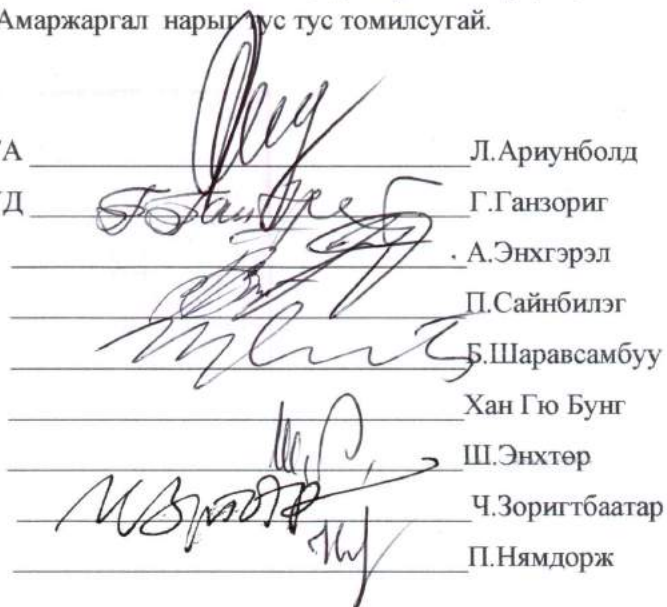 Амаржаргал нарыг тус тус томилсугай.
Л.Ариунболд
Г.Ганзориг
А.Энхгэрэл
П.Сайнбилэг
Б.Шаравсамбуу
Хан Гю Бунг
Ш.Энхтөр
Ч.Зоригтбаатар
П.Нямдорж